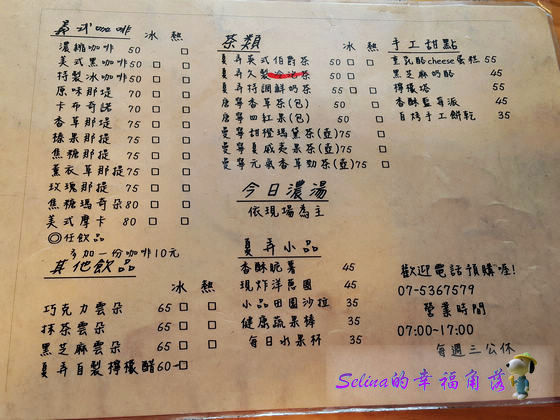 義式咖啡 冰 熱
濃縮咖啡 50 □
美式黑咖啡 50 □ □
特製冰咖啡 50 □
原味那堤 70 □ □
卡布奇諾 70 □ □
香草那堤 75 □ □
榛果那堤 75 □ □
焦糖那堤 75 □ □
薰衣草那堤 75 □ □
玫瑰那堤 75 □ □
焦糖瑪奇朵 80 □ □
美式摩卡 80 □ □
◎任飲品
多加一份咖啡10元
其他飲品 冰 熱
巧克力雲朵 65 □ □
抹茶雲朵 65 □ □
黑芝麻雲朵 65 □ □
夏弄自製檸檬醋 60 □
茶類 冰 熱
夏弄英式伯爵茶 50 □ □
夏弄久製冷泡茶 50 □
夏弄特調鮮奶茶 55 □ □
唐寧香草茶(包) 50 □
唐寧四紅果(包) 50 □
曼寧甜橙瑪黛茶(壺) 75 □
曼寧夏威夷果茶(壺) 75 □
曼寧元氣香草勁茶(壺) 75 □
今日濃湯
依現場為主
夏弄小品
香酥脆薯 45
現炸洋芭圈 45
小品田園沙拉 35
健康蔬果棒 35
每日水果杯 35
手工甜點
重乳酪cheese蛋糕 55
黑芝麻奶酪 45
檸檬塔 55
香酥藍莓派 45
自烤手工餅乾 35
歡迎電話預購喔!
07-5367579
營業時間
07:00~17:00
每週三公休
Selina的幸福角落